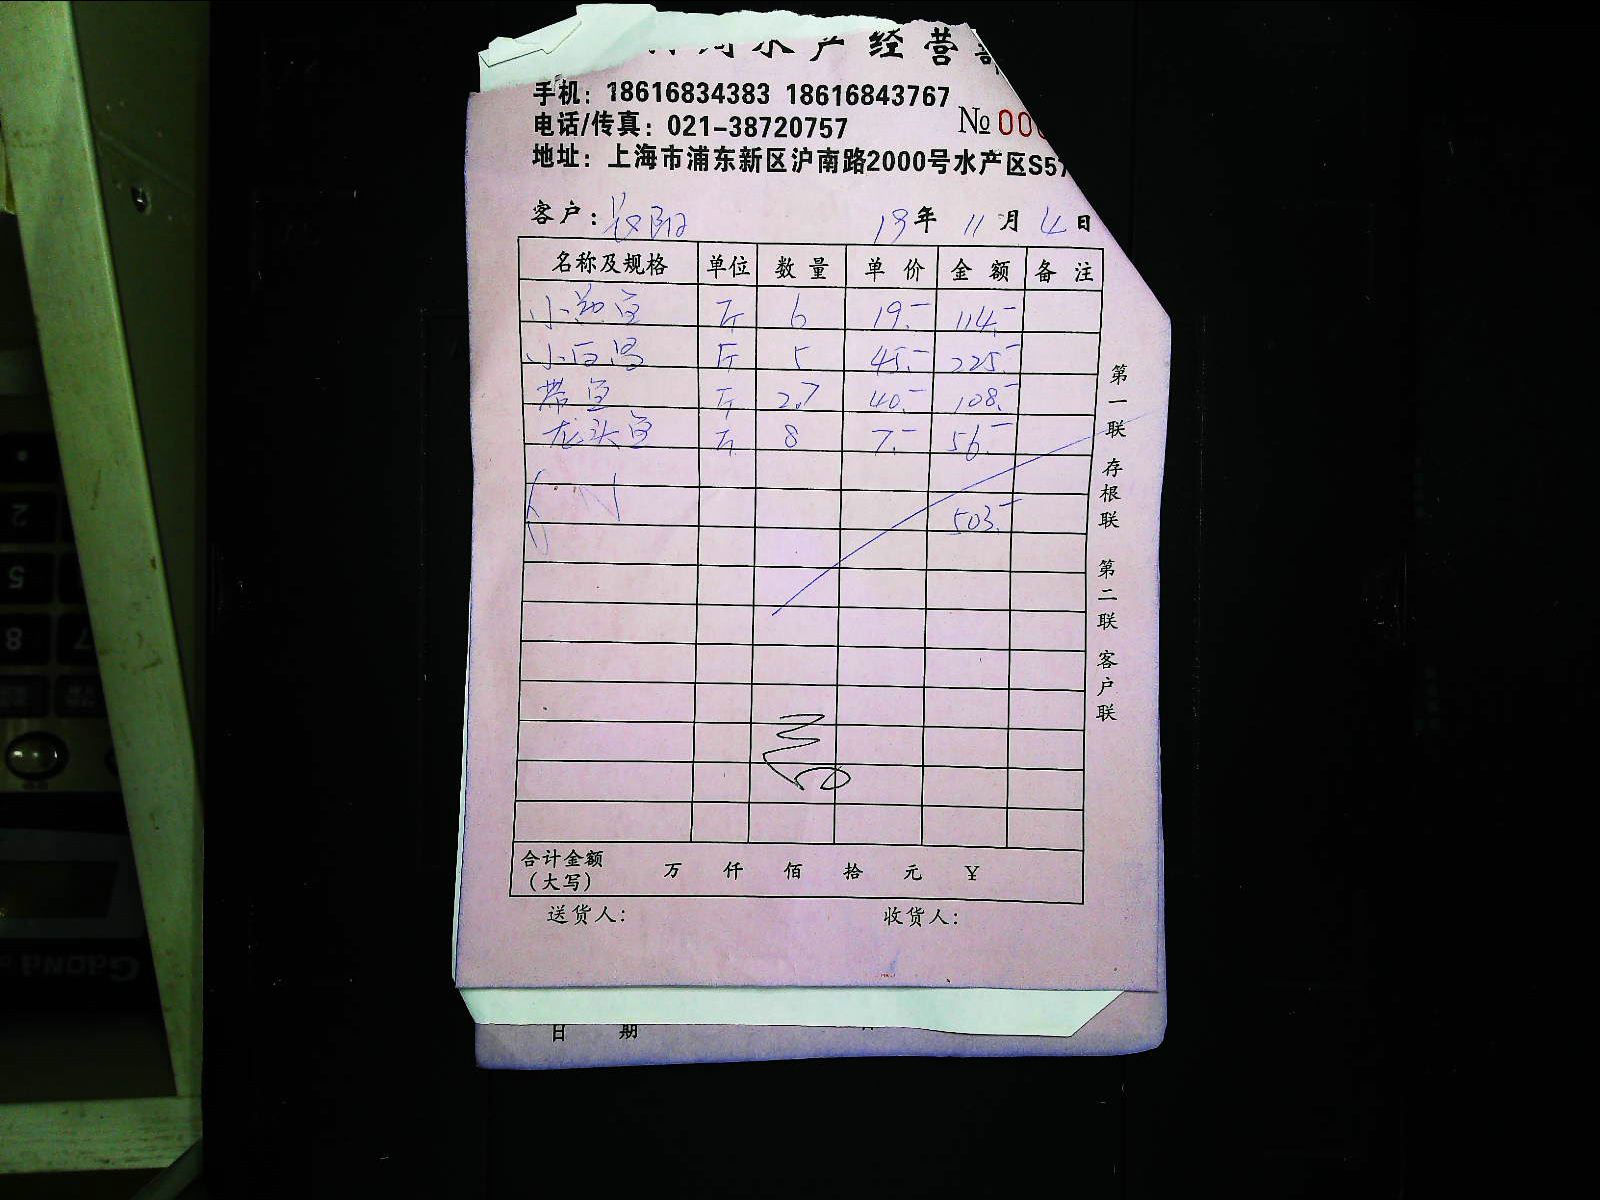 水产经营部
手机：18616834383 18616843767
电话/传真：021-38720757
№ 00
地址：上海市浦东新区沪南路2000号水产区S57
客户：长阳 19年 11月 4日
名称及规格 单位 数量 单价 金额 备注
小黄鱼 斤 6 19.- 114.-
小白鲳 斤 5 45.- 225.-
带鱼 斤 2.7 40.- 108.-
龙头鱼 斤 8 7.- 56.-
503.-
第一联 存根联 第二联 客户联
合计金额（大写） 万 仟 佰 拾 元 ¥
送货人： 收货人：
日 期